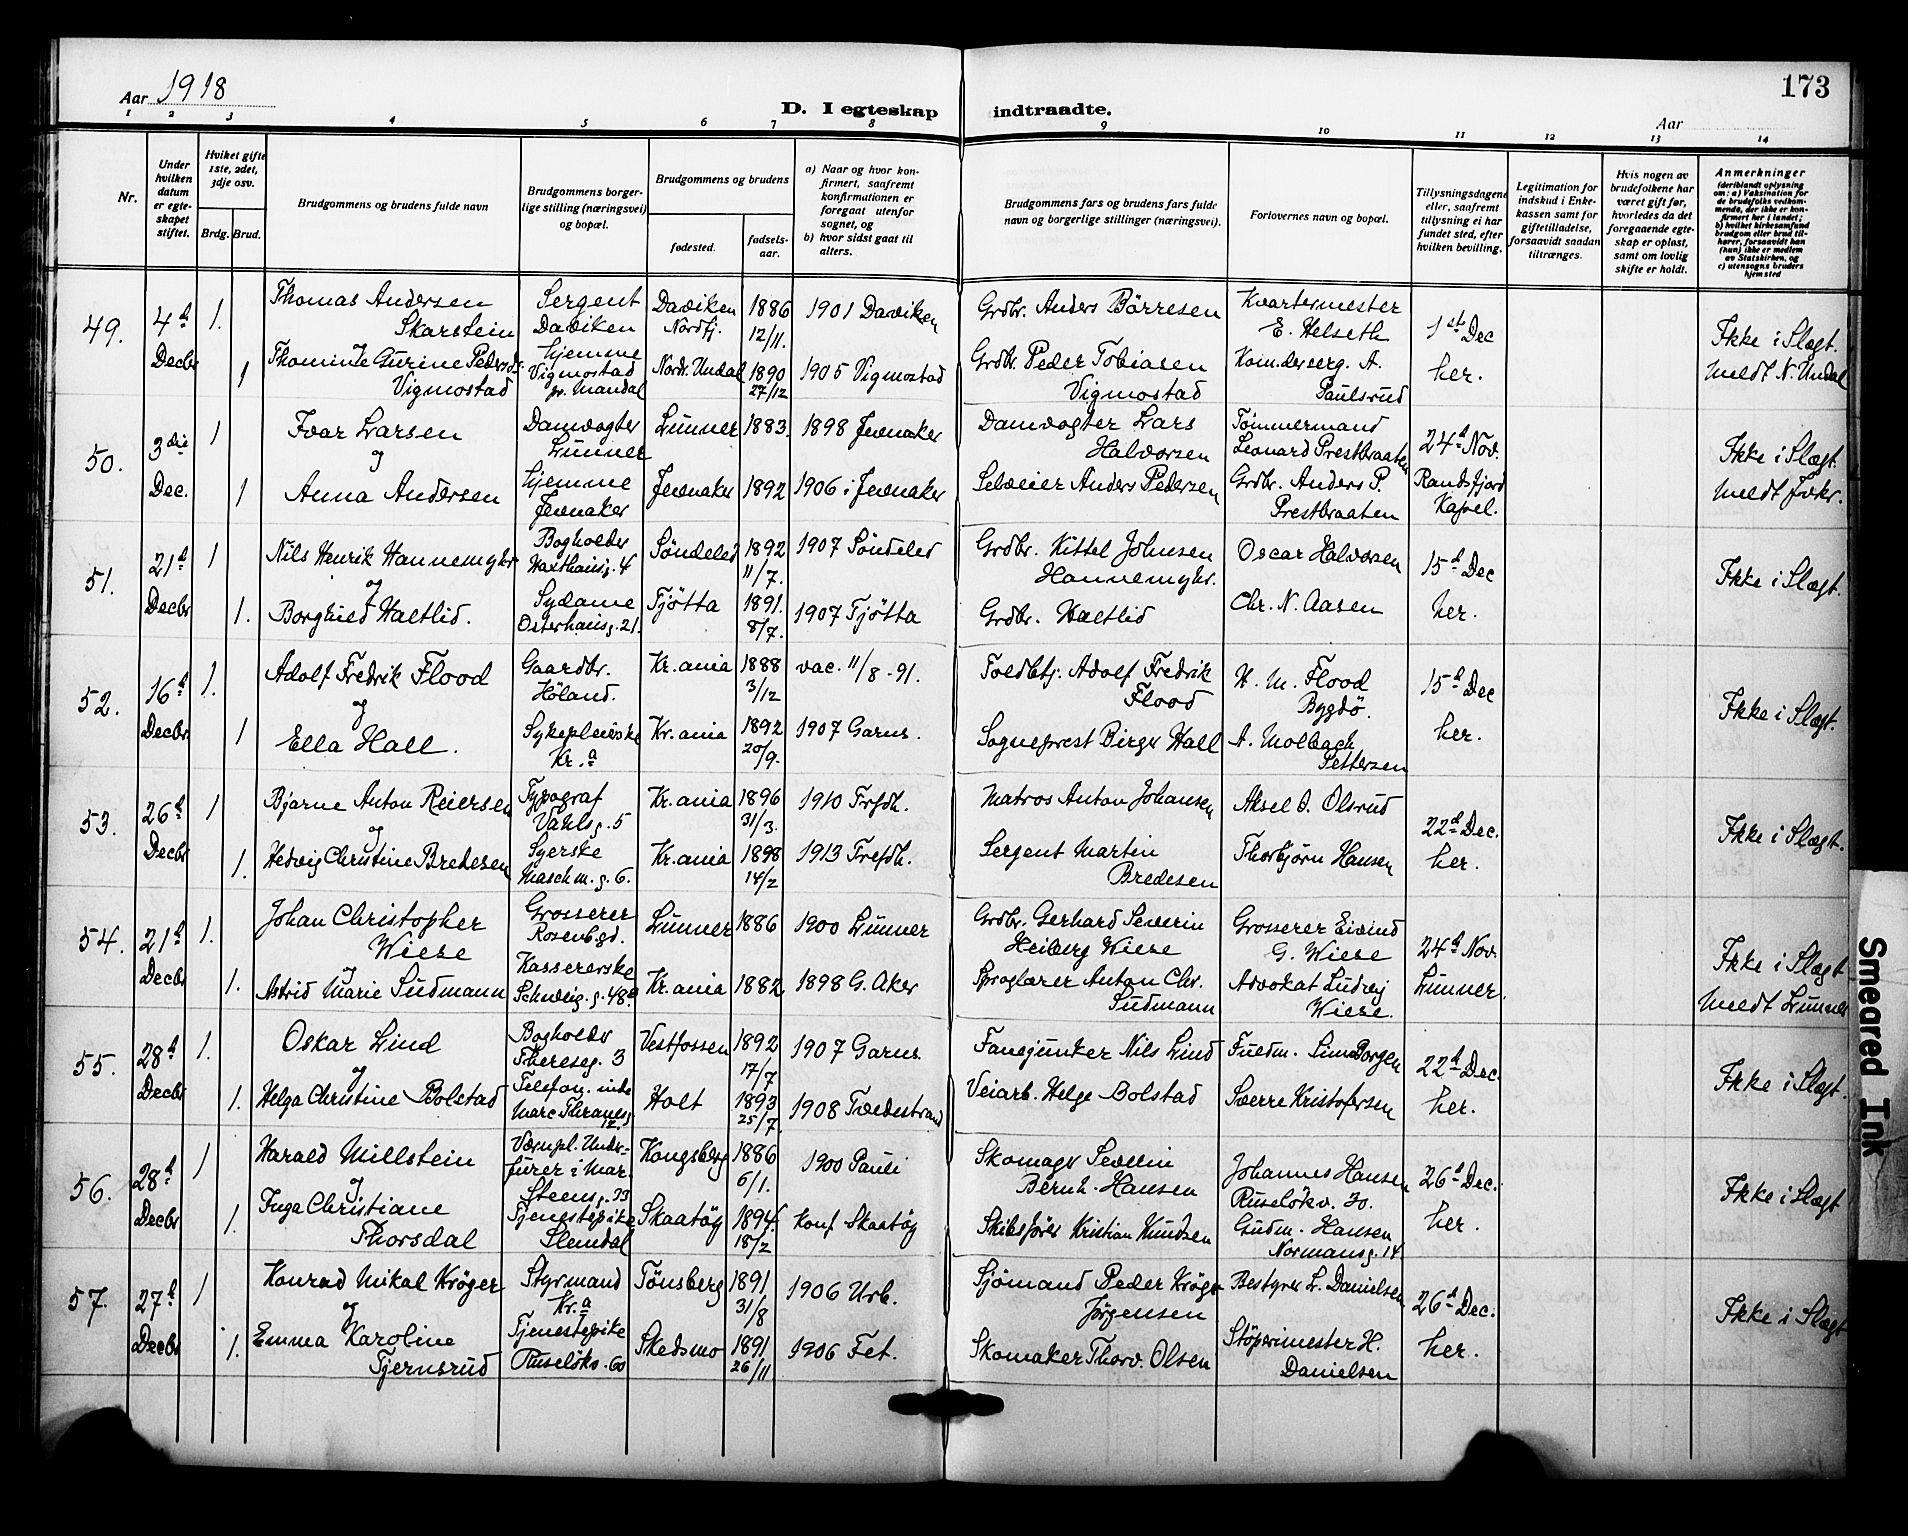 Aar 1918
D. I egteskap indtraadte.
Aar
173
1 2 3 4 5 6 7 8 9 10 11 12 13 14
Nr.
Under hvilken datum er egteskapet stiftet.
Hvilket gifte 1ste, 2det, 3dje osv.
Brdg. Brud.
Brudgommens og brudens fulde navn
Brudgommens borgerlige stilling (næringsvei) og bopæl.
Brudgommens og brudens
fødested.
fødselsaar.
a) Naar og hvor konfirmert, saafremt konfirmationen er foregaat utenfor sognet, og
b) hvor sidst gaat til alters.
Brudgommens fars og brudens fars fulde navn og borgerlige stillinger (næringsvei).
Forlovernes navn og bopæl.
Tillysningsdagene eller, saafremt tillysning ei har fundet sted, efter hvilken bevilling.
Legitimation for indskud i Enkekassen samt for giftetilladelse, forsaavidt saadan tiltrænges.
Hvis nogen av brudefolkene har været gift før, hvorledes da det foregaaende egteskap er opløst, samt om lovlig skifte er holdt.
Anmerkninger
(deriblandt oplysning om: a) Vaksination for de brudefolks vedkommende, der ikke er konfirmert her i landet; b) hvilket kirkesamfund brudgom eller brud tilhører, forsaavidt han (hun) ikke er medlem av Statskirken, og c) utensogns bruders hjemsted
49. 4d Decbr 1. Thomas Andersen Skarstein Sergent Daviken Daviken Nordfj. 1886 12/11. 1901 Daviken Grdbr. Anders Börresen Kvartermester E. Helseth 1ste Dec her. Ikke i Slægt. Meldt N. Undal
og
1 Thomine Gurine Pedersdr. Vigmostad Hjemme Vigmostad pr. Mandal Nordr. Undal 1890 27/12 1905 Vigmostad Grdbr. Peder Tobiasen Vigmostad Komdrserg. A. Paulsrud
50. 3die Dec. 1 Ivar Larsen Damvogter Lunner Lunner 1883. 1898 Jevnaker Damvogter Lars Halvorsen Tømmermand Leonard Prestbraaten 24d Nov. Randsfjord Kapel. Ikke i Slægt. Meldt Jvkr.
og
1 Anna Andersen Hjemme Jevnaker Jevnaker 1892 1906 i Jevnaker Selveier Anders Pedersen Grdbr. Anders P. Prestbraaten
51. 21d Decbr 1 Nils Henrik Hannemykr Bogholder Waxthausg. 4 Söndeled 1892 11/7. 1907 Söndeled Grdbr. Kittel Johnsen Hannemykr. Oscar Halvorsen 15d Dec her. Ikke i Slægt.
og
1. Borghild Haltlid. Sydame Osterhausg. 21. Tjøtta 1891. 8/7. 1907 Tjøtta Grdbr. Haltlid Chr. N. Aasen
52. 16d Decbr. 1. Adolf Fredrik Flood Gaardbr. Høland. Kr.ania 1888 3/12 vac. 11/8 - 91. Toldbtj. Adolf Fredrik Flood H. M. Flood Bygdö. 15d Dec her. Ikke i Slægt.
og
1 Ella Hall. Sykepleierske Kr.a Kr.ania 1892 20/9. 1907 Garns. Sogneprest Birger Hall A. Molbach Pettersen
53. 26d Decbr 1 Bjarne Anton Reiersen Typograf Vahlsg. 5 Kr.ania 1896 31/3. 1910 Trfdh. Matros Anton Johansen Aksel O. Olsrud 22d Dec. her. Ikke i Slægt.
og
1. Hedvig Christine Bredesen Syerske Maschm.g. 6. Kr.ania 1898 14/2 1913 Trefdh. Sergent Martin Bredesen Thorbjørn Hansen
54. 21d Decbr 1. Johan Christopher Wiese Grosserer Rosenb.gd. Lunner 1886 1900 Lunner Grdbr. Gerhard Severin Heiberg Wiese Grosserer Eivind G. Wiese 24d Nov. Lunner. Ikke i Slægt Meldt Lunner
og
1. Astrid Marie Sudmann Kassererske Schweig.g. 48a Kr.ania 1882 1898 G. Aker Sproglærer Anton Chr. Sudmann Advokat Ludvig Wiese.
55. 28d Decbr 1. Oskar Lind Bogholder Thereseg. 3 Vestfossen 1892 17/7 1907 Garns Fanejunker Nils Lind Fuldm. Borgen 22d Dec. her. Ikke i Slægt.
og
1. Helga Christine Bolstad Telefon. Marc. Thranesg 12. Holt 1893 25/7 1908 Tvedestrand Veiarb. Helge Bolstad Sverre Kristofersen
56. 28d Decbr 1 Harald Millstein Værnpl. Underfurer i Mar. Steensg. 23 Kongsberg 1886 6/1. 1900 Pauli Skomager Severin Bernh. Hansen Johannes Hansen Ruselökv. 30. 26d Dec. her. Ikke i Slægt
og
1. Inga Christiane Thorsdal Tjenestepike Slemdal Skaatöy 1894 18/2 Konf Skaatöy Skibsförer Kristian Knudsen Gudm. Hansen Normansg. 14
57. 27d Decbr 1 Konrad Mikal Kröger Styrmand Kr.a Tönsberg 1891 31/8 1906 Urb. Sjömand Peder Kröger Jörgensen Bestyrer L. Danielsen 26d Dec. her. Ikke i Slægt
og
1. Emma Karoline Tjernsrud Tjenestepike Ruselökv. 60 Skedsmo 1891 26/11 1906 Fet. Skomaker Thorv. Olsen Støperimester H. Danielsen
Smeared Ink